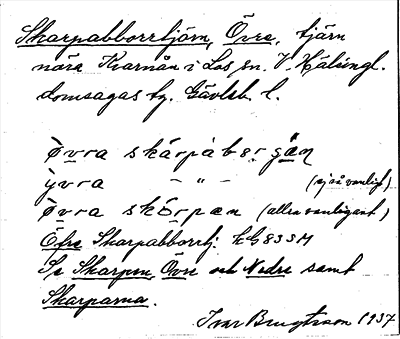 Skarpabborrtjärn, Övre, tjärn
nära Kvarnån i Los sn. V. Hälsingl.
domsagas tg. Gävleb. l.
òvra skárpàbərgän
ỳvra – " – (ej så vanligt)
òvra skórpən (allra vanligast)
Öfre Skarpabborrtj. kG833M
Se Skarpen, Övre och Nedre samt
Skarparna.
Ivar Bengtsson 1937